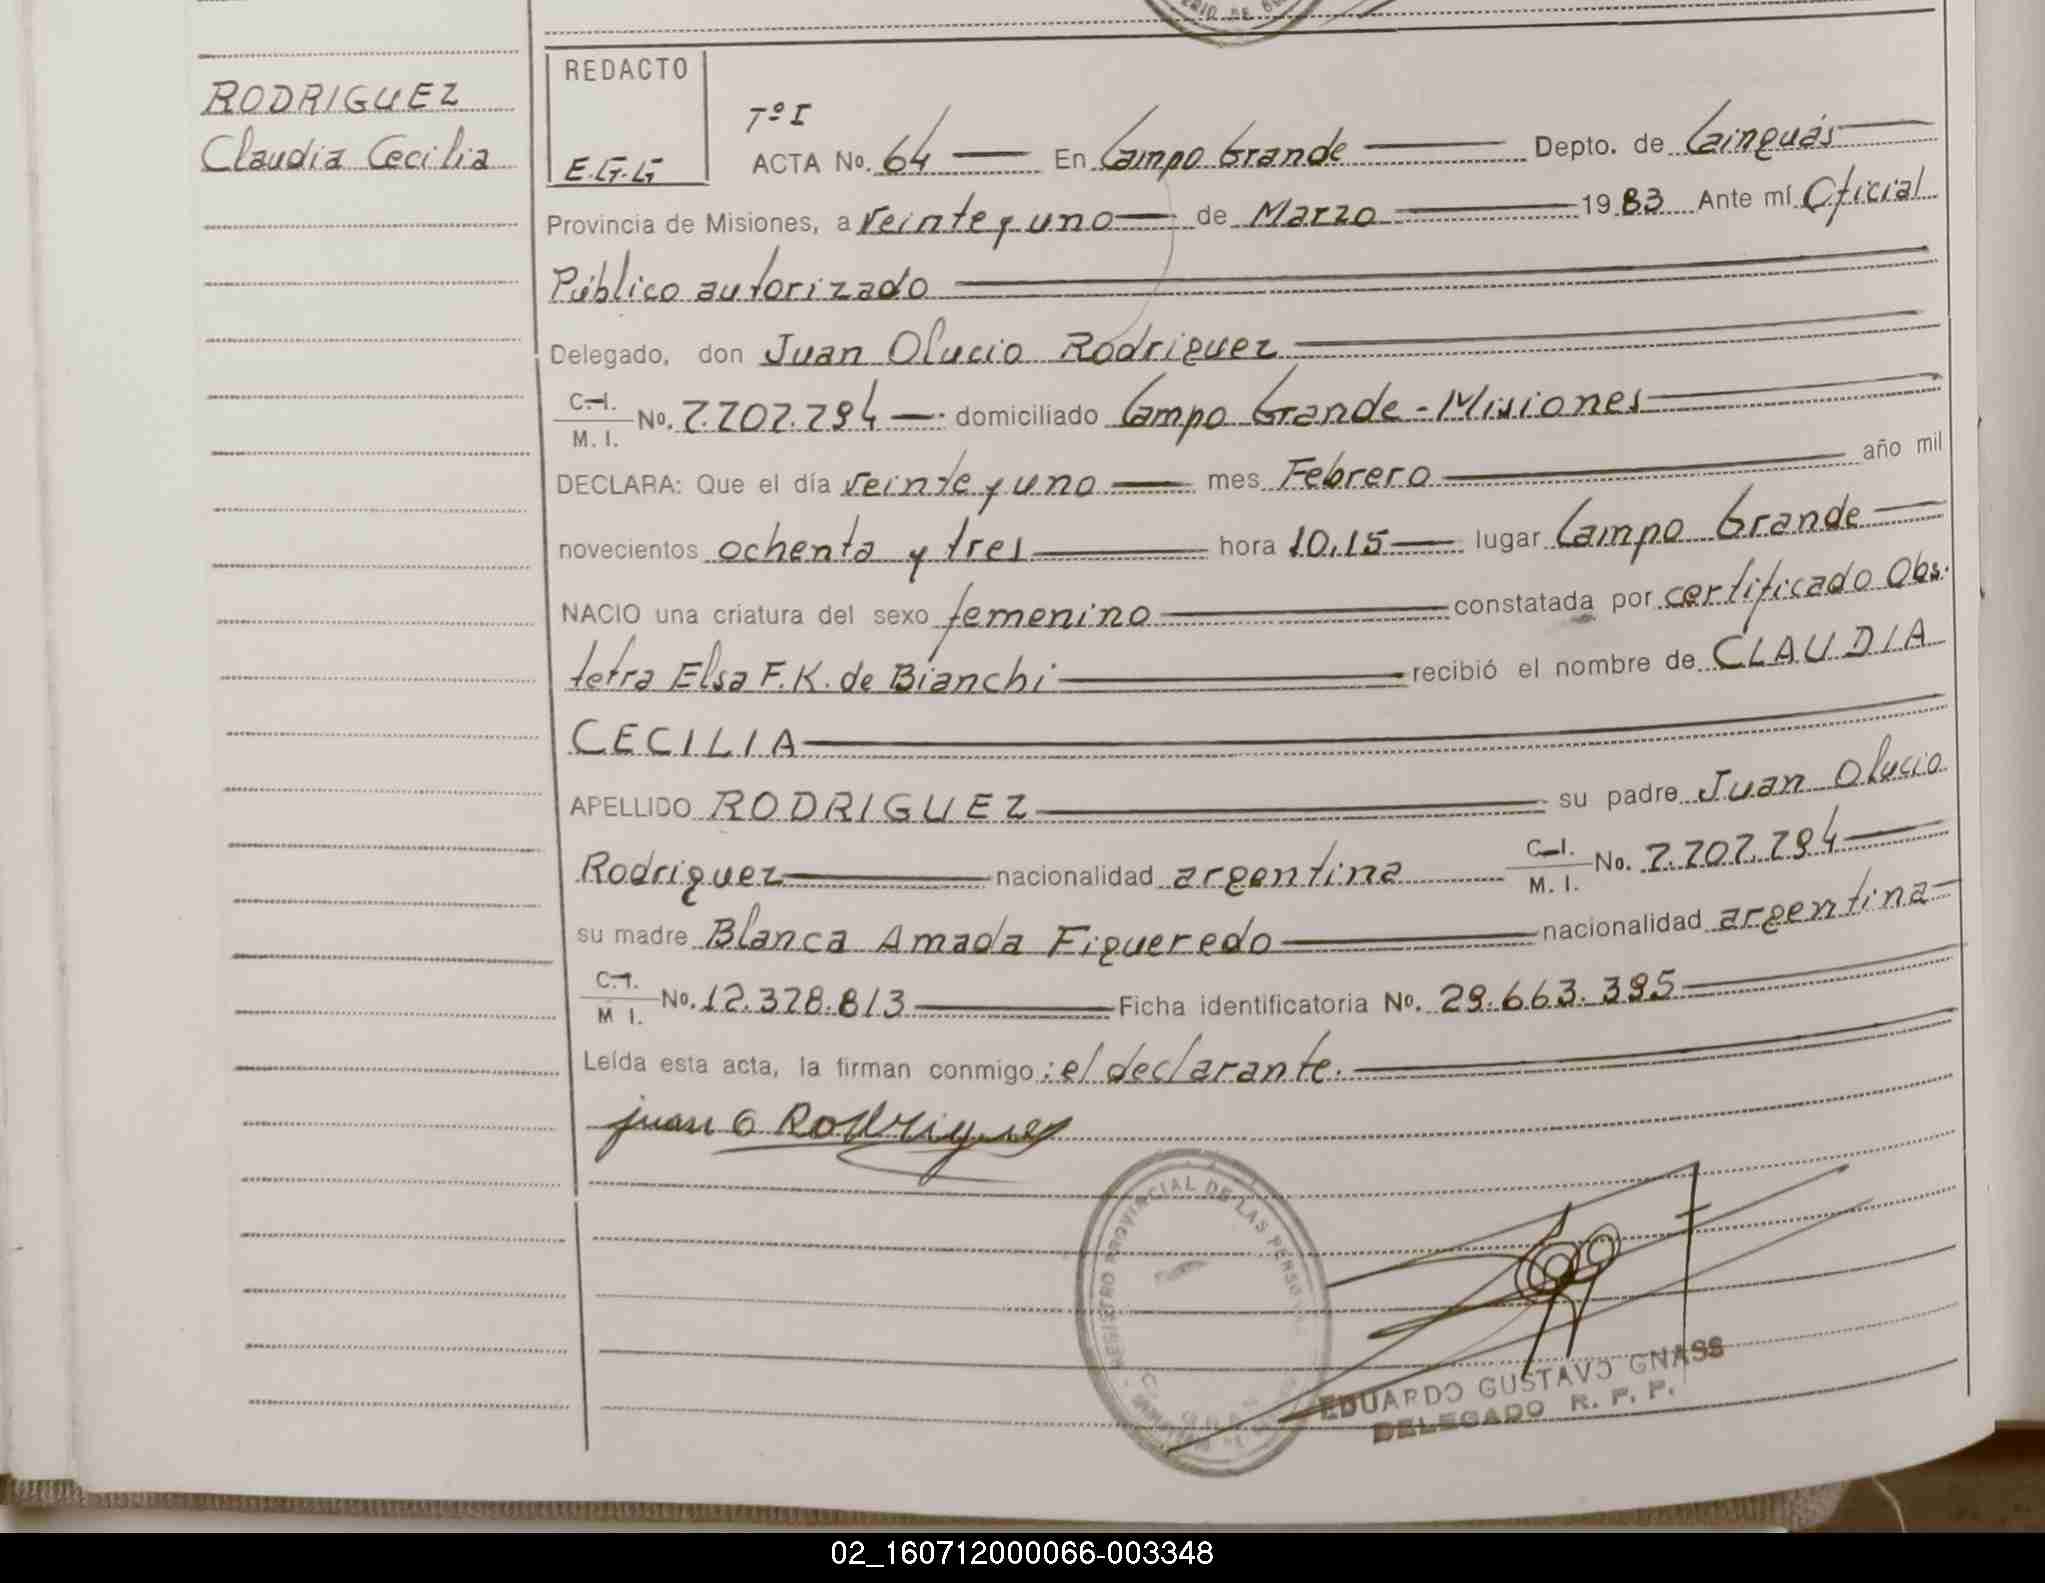 RODRIGUEZ
Claudia Cecilia
REDACTO
E.G.G
Tº I
ACTA No. 64 En Campo Grande Depto. de Cainguás
Provincia de Misiones, a veinte y uno de Marzo 1983 Ante mí Oficial
Público autorizado
Delegado, don Juan Olucio Rodriguez
C.I. / M. I. No. 7.707.794 domiciliado Campo Grande - Misiones
DECLARA: Que el día veinte y uno mes Febrero año mil
novecientos ochenta y tres hora 10,15 lugar Campo Grande
NACIO una criatura del sexo femenino constatada por certificado Obs.
tetra Elsa F.K. de Bianchi recibió el nombre de CLAUDIA
CECILIA
APELLIDO RODRIGUEZ su padre Juan Olucio
Rodriguez nacionalidad argentina C.I. / M. I. No. 7.707.794
su madre Blanca Amada Figueredo nacionalidad argentina
C.I. / M I. No. 12.378.813 Ficha identificatoria No. 29.663.395
Leída esta acta, la firman conmigo: el declarante.
juan O Rodriguez
REGISTRO PROVINCIAL DE LAS PERSONAS
EDUARDO GUSTAVO GNASS
DELEGADO R. P. P.
02_160712000066-003348